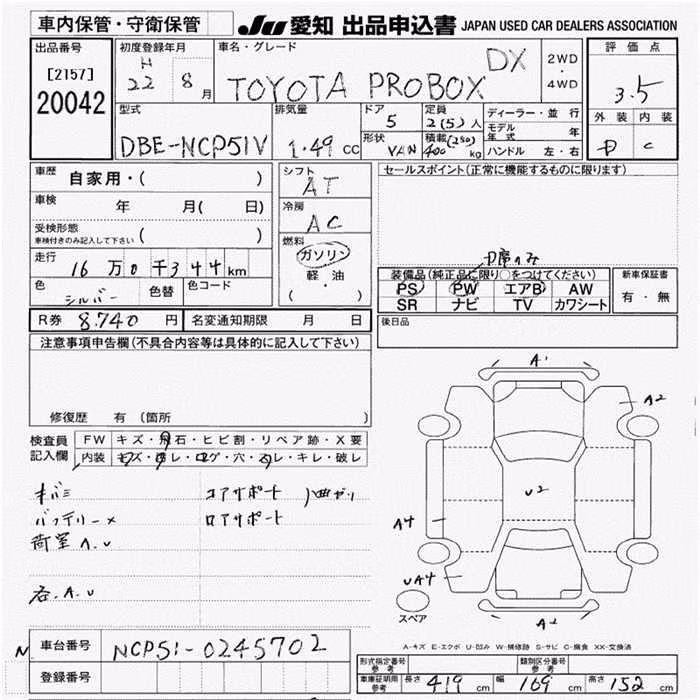 車内保管・守衛保管 JU 愛知 出品申込書 JAPAN USED CAR DEALERS ASSOCIATION
出品番号 初度登録年月 車名・グレード 評価点
[2157] H 22 8月 TOYOTA PROBOX DX 2WD・4WD 3.5
20042 型式 排気量 ドア 定員 ディーラー・並行 外装 内装
DBE-NCP51V 1.49 cc 5 2(5)人 モデル年式 年 D C
形状 VAN 積載 (250) 400 kg ハンドル 左・右
車歴 自家用・( ) シフト AT セールスポイント(正常に機能するものに限ります)
車検 年 月( 日) 冷房 AC
受検形態 ( )
車検付きのみ記入して下さい
燃料 ガソリン
軽・油
( )
走行 16万0千344km
色 シルバー 色替 色コード
装備品(純正品に限り○をつけてください) 新車保証書
PS PW エアB AW 有・無
SR ナビ TV カワシート
R券 8.740円 名変通知期限 月 日 後日品
注意事項申告欄(不具合内容等は具体的に記入して下さい)
修復歴 有 (箇所 )
検査員記入欄 FW キズ・飛石・ヒビ割・リペア跡・X要
内装 キズ・汚レ・コゲ・穴・スレ・キレ・破レ
キバミ コアサポート 曲がり
バッテリー× ロアサポート
荷室A.U
各.A.U
A1
A2
U2
A4
UA4
A2
スペア
A-キズ E-エクボ U-凹み W-補修跡 S-サビ C-腐食 XX-交換済
車台番号 NCP51-0245702
登録番号
型式指定番号 参考 類別区分番号 参考
車庫証明用 参考 長さ 419 cm 幅 169 cm 高さ 152 cm